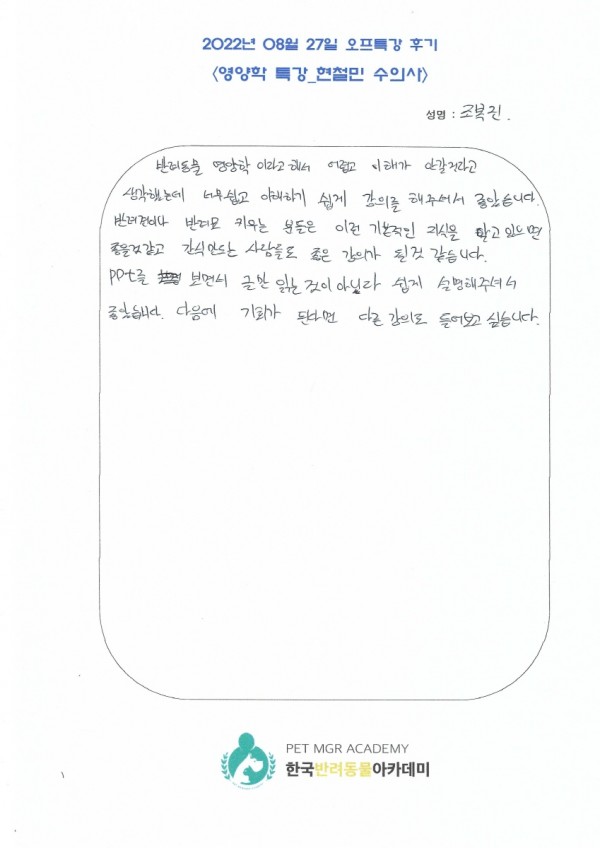 2022년 08월 27일 오프특강 후기
<영양학 특강_현철민 수의사>
성명 : 조복진.
반려동물 영양학 이라고해서 어렵고 이해가 안갈거라고
생각했는데 너무쉽고 이해하기 쉽게 강의를 해주셔서 좋았습니다.
반려견이나 반려묘 키우는 분들은 이런 기본적인 지식을 알고있으면
좋을것같고 간식만드는 사람들도 좋은 강의가 될것 같습니다.
PPt를 보면서 글만 읽는 것이 아니라 쉽게 설명해주셔서
좋았습니다. 다음에 기회가 된다면 다른 강의도 들어보고 싶습니다.
PET MGR ACADEMY
한국반려동물아카데미